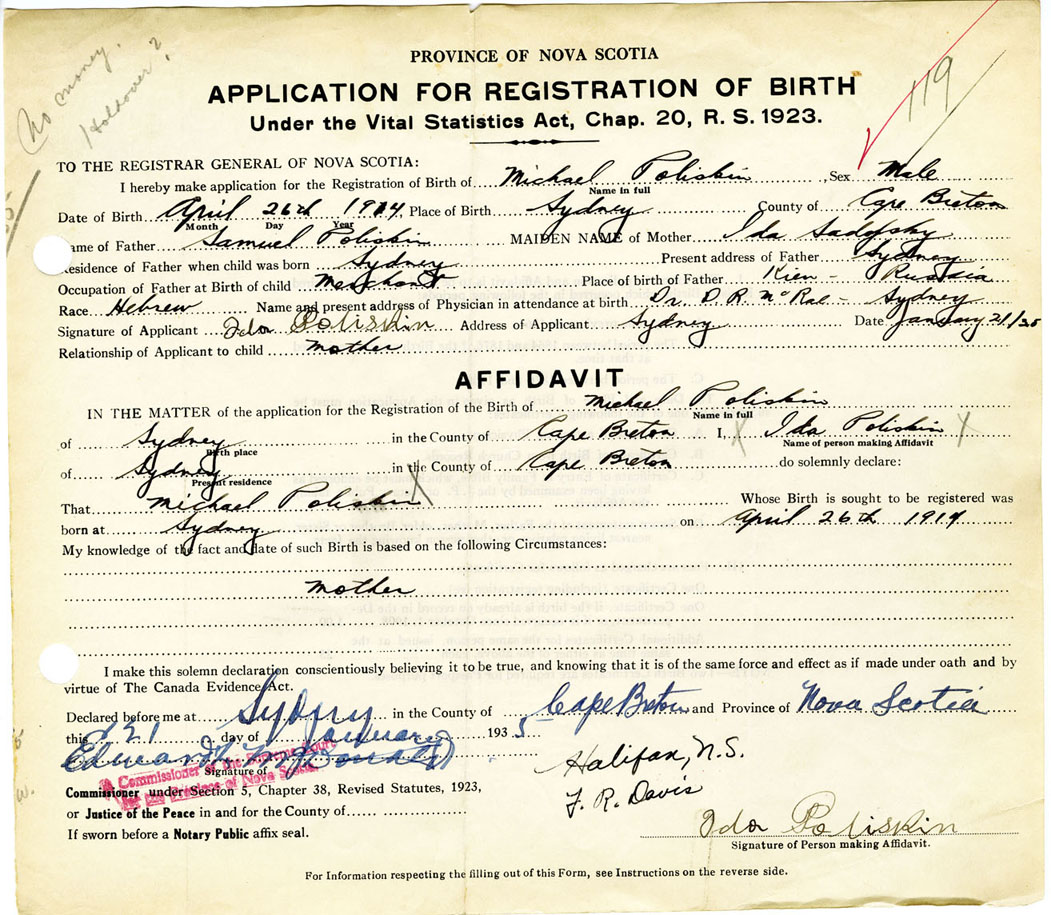 No money.
Holdover?
119
PROVINCE OF NOVA SCOTIA
APPLICATION FOR REGISTRATION OF BIRTH
Under the Vital Statistics Act, Chap. 20, R. S. 1923.
TO THE REGISTRAR GENERAL OF NOVA SCOTIA:
I hereby make application for the Registration of Birth of Michael Poliskin , Sex Male
Name in full
Date of Birth April 26th 1914 Place of Birth Sydney County of Cape Breton
Month Day Year
ame of Father Samuel Poliskin MAIDEN NAME of Mother Ida Sadofsky
esidence of Father when child was born Sydney Present address of Father Sydney
Occupation of Father at Birth of child Merchant Place of birth of Father Kiev - Russia
Race Hebrew Name and present address of Physician in attendance at birth Dr. D R McRae - Sydney
Signature of Applicant Ida Poliskin Address of Applicant Sydney Date January 21/35
Relationship of Applicant to child mother
AFFIDAVIT
IN THE MATTER of the application for the Registration of the Birth of Michael Poliskin
Name in full
of Sydney in the County of Cape Breton I, Ida Poliskin
Birth place Name of person making Affidavit
of Sydney in the County of Cape Breton do solemnly declare:
Present residence
That Michael Poliskin Whose Birth is sought to be registered was
born at Sydney on April 26th 1914
My knowledge of the fact and date of such Birth is based on the following Circumstances:
mother
I make this solemn declaration conscientiously believing it to be true, and knowing that it is of the same force and effect as if made under oath and by
virtue of The Canada Evidence Act.
Declared before me at Sydney in the County of Cape Breton and Province of Nova Scotia
this 21 day of January 1935
Halifax, N.S.
A Commissioner of the Supreme Court
for the Province of Nova Scotia
Signature of
Commissioner under Section 5, Chapter 38, Revised Statutes, 1923,
F. R. Davis
or Justice of the Peace in and for the County of
If sworn before a Notary Public affix seal.
Ida Poliskin
Signature of Person making Affidavit.
For Information respecting the filling out of this Form, see Instructions on the reverse side.